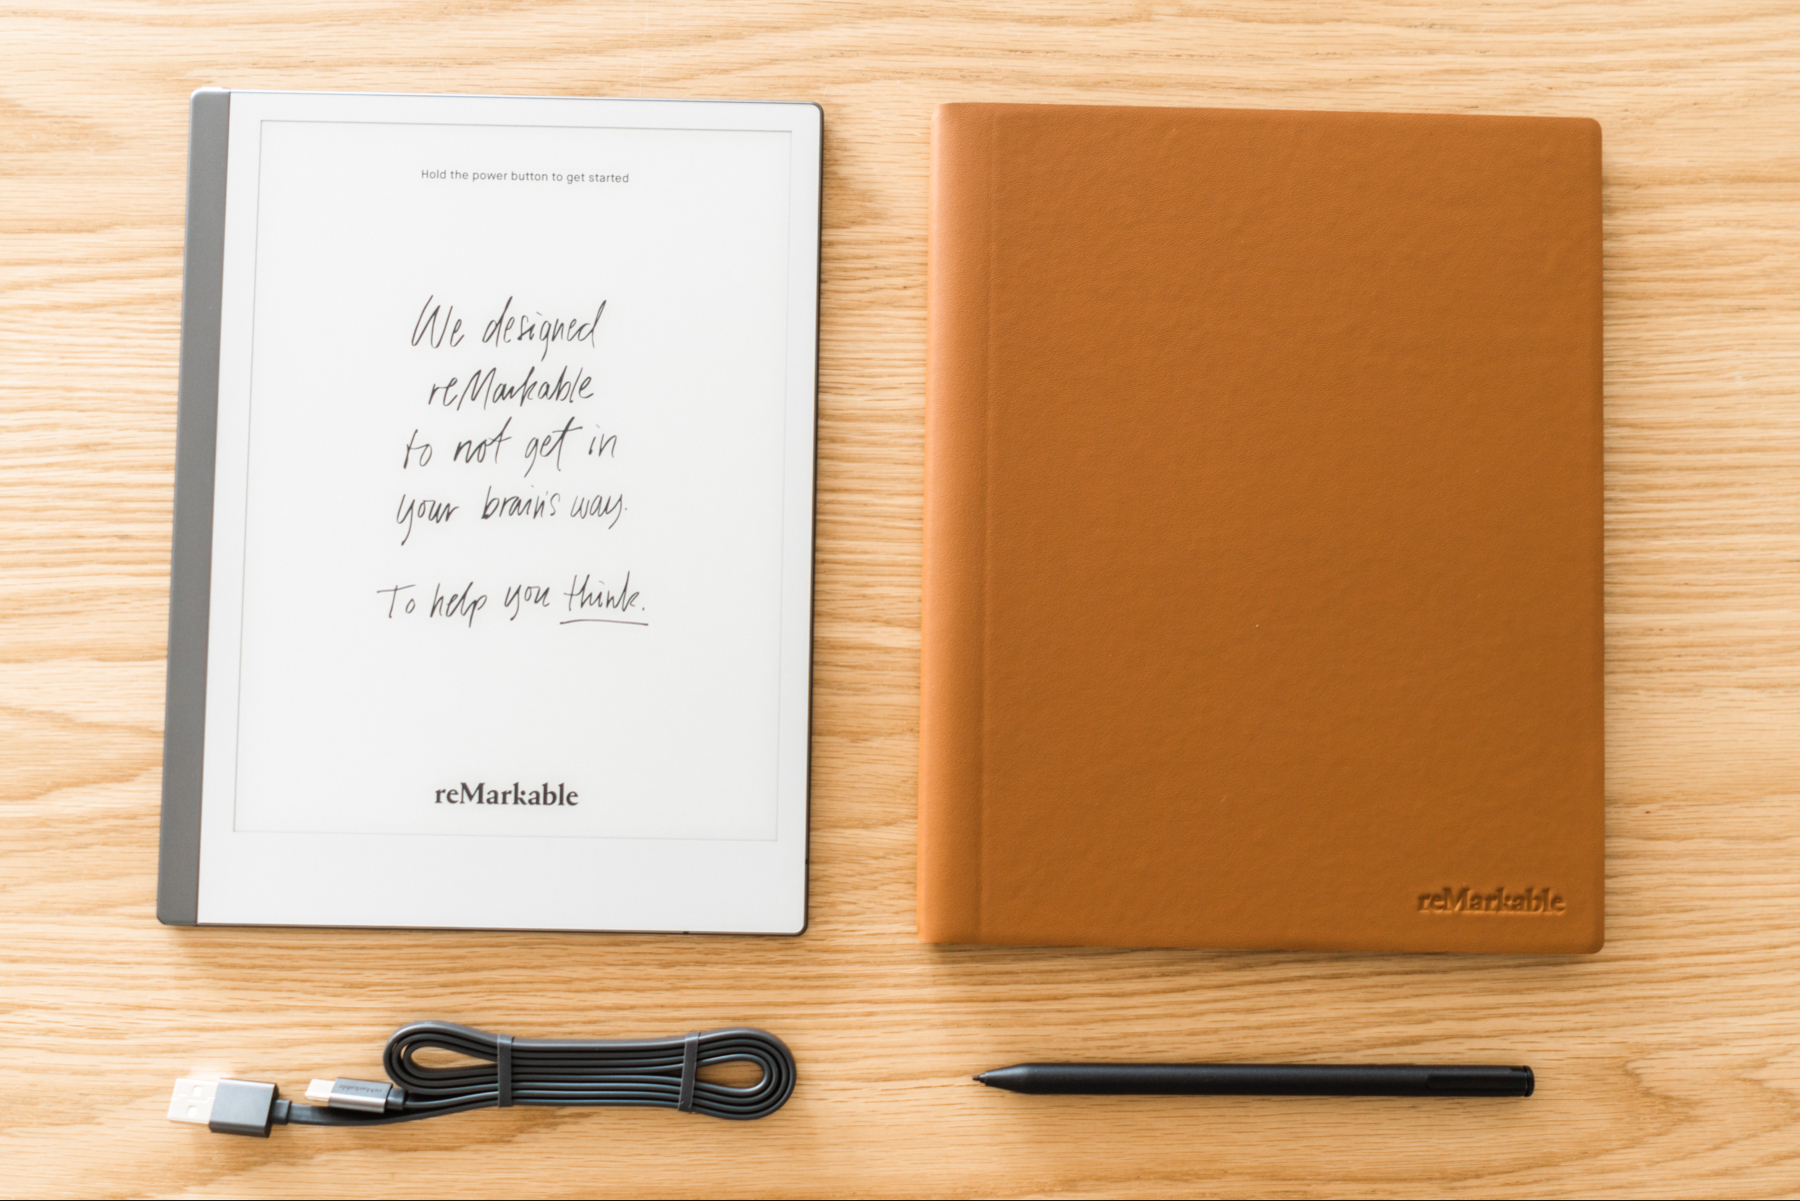 Hold the power button to get started
We designed
reMarkable
to not get in
your brain's way.
To help you think.
reMarkable
reMarkable
reMarkable